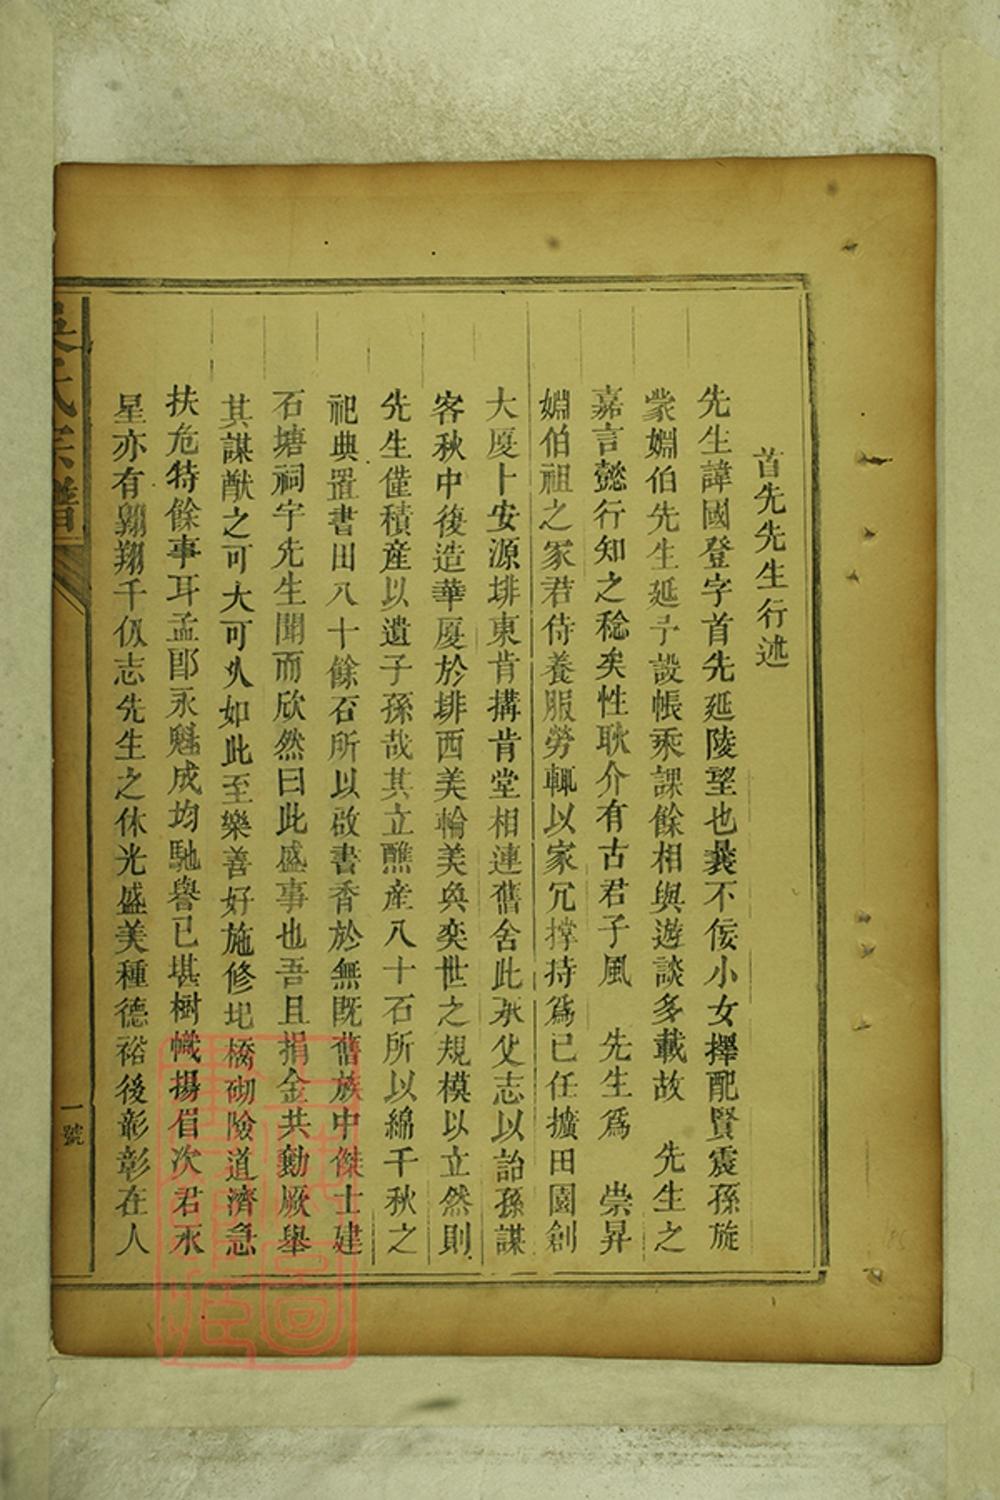 首先先生行述
先生諱國登字首先延陵望也曩不佞小女擇配賢震孫旋
蒙姻伯先生延予設帳乘課餘相與遊談多載故 先生之
嘉言懿行知之稔矣性耿介有古君子風 先生爲 崇昇
姻伯祖之冢君侍養服勞輒以家冗撐持爲已任擴田園創
大厦卜安源堪東肯搆肯堂相連舊舍此承父志以詒孫謀
客秋中復造華厦於堪西美輪美奐奕世之規模以立然則
先生僅積産以遺子孫哉其立醮産八十石所以綿千秋之
祀典置書田八十餘石所以啟書香於無旣舊族中傑士建
石塘祠宇先生聞而欣然曰此盛事也吾且捐金共勷厥舉
其謀猷之可大可久如此至樂善好施修圯橋砌險道濟急
扶危特餘事耳孟郎永魁成均馳譽已堪樹幟揚眉次君永
星亦有翱翔千仭志先生之休光盛美種德裕後彰彰在人
吳氏宗譜
一號